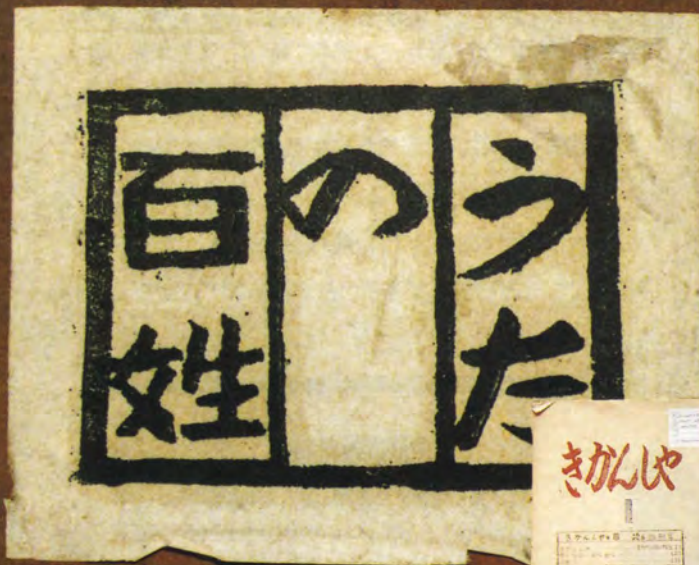 うた
の
百姓
きかんしや